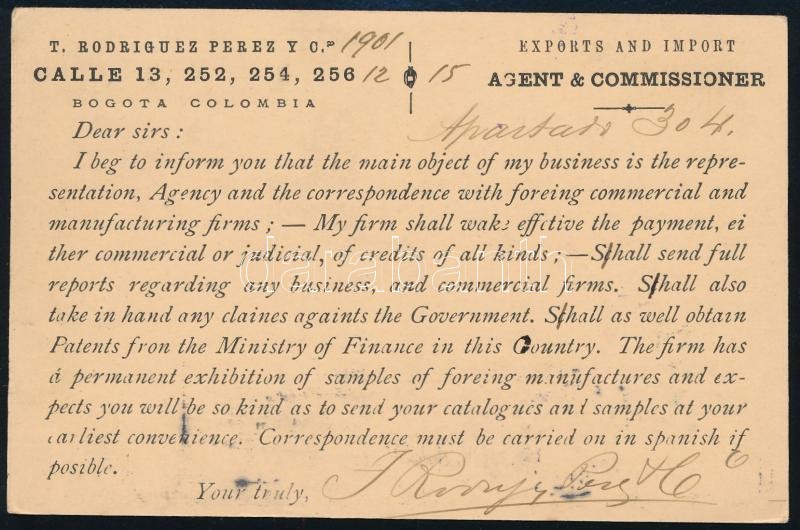 T. RODRIGUEZ PEREZ Y C.ª 1901
EXPORTS AND IMPORT
CALLE 13, 252, 254, 256 12 15
AGENT & COMMISSIONER
BOGOTA COLOMBIA
Apartado 304.
Dear sirs :
I beg to inform you that the main object of my business is the repre-
sentation, Agency and the correspondence with foreing commercial and
manufacturing firms ; — My firm shall wake effctive the payment, ei
ther commercial or judicial, of credits of all kinds ; — Schall send full
reports regarding any business, and commercial firms. Schall also
take in hand any claines againts the Government. Schall as well obtain
Patents fron the Ministry of Finance in this Country. The firm has
á permanent exhibition of samples of foreing manufactures and ex-
pects you will be so kind as to send your catalogues and samples at your
earliest convenience. Correspondence must be carried on in spanish if
posible.
Your truly, T Rodriguez Perez & Co
darabanth